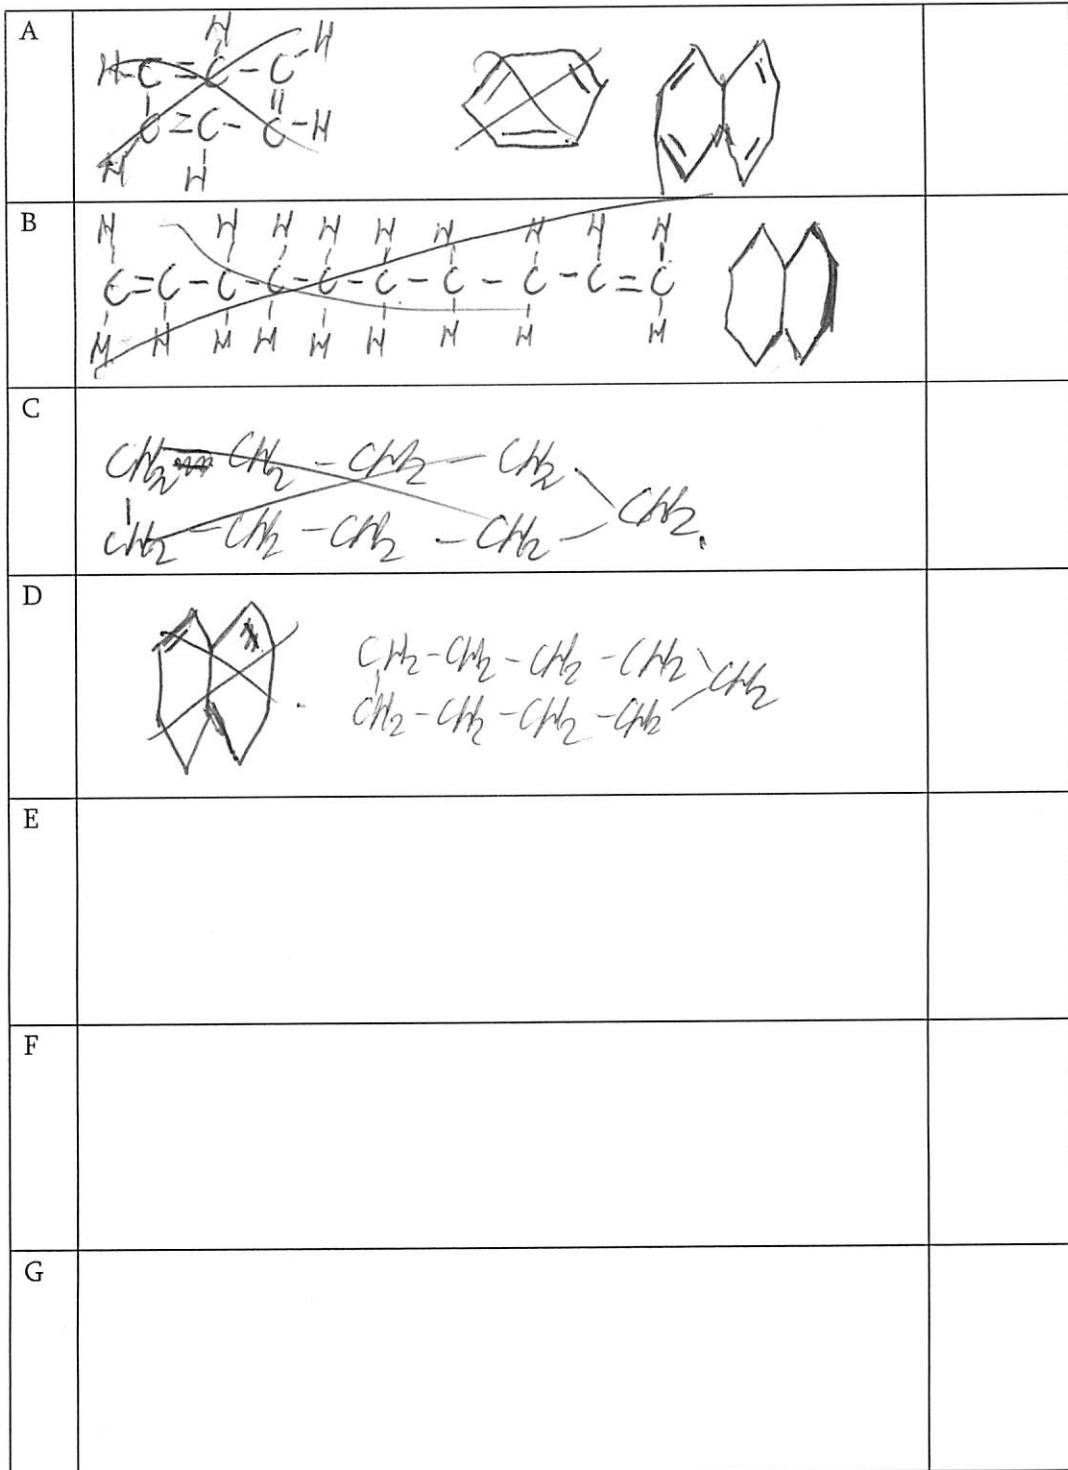 A
H
H-C=C-C-H
C=C-C-H
H H
B
H H H H H H H H H
C=C-C-C-C-C-C-C-C=C
H H H H H H H H H
C
CH2 CH2-CH2-CH2
CH2
CH2-CH2-CH2-CH2
D
CH2-CH2-CH2-CH2
CH2
CH2-CH2-CH2-CH2
E
F
G